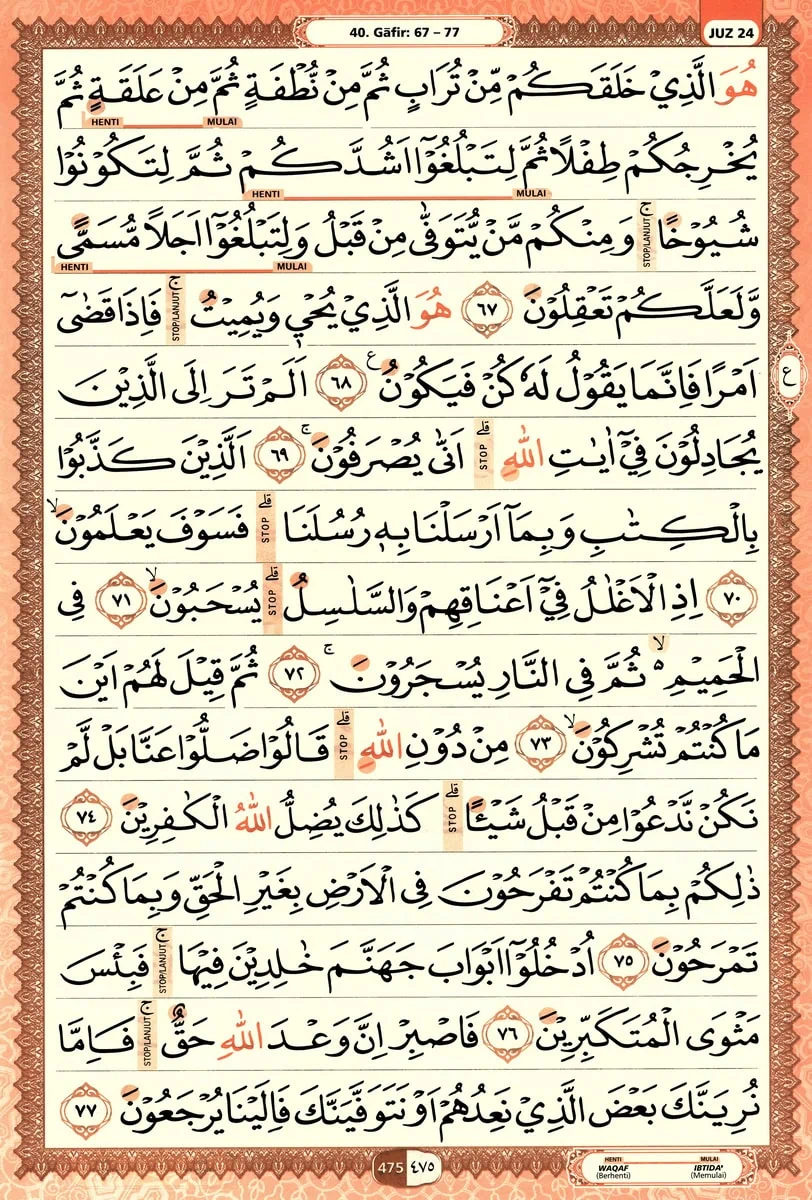 40. Gāfir: 67 – 77
JUZ 24
هُوَ الَّذِيْ خَلَقَكُمْ مِّنْ تُرَابٍ ثُمَّ مِنْ نُّطْفَةٍ ثُمَّ مِنْ عَلَقَةٍ ثُمَّ
HENTI MULAI
يُخْرِجُكُمْ طِفْلًا ثُمَّ لِتَبْلُغُوْٓا اَشُدَّكُمْ ثُمَّ لِتَكُوْنُوْا
HENTI MULAI
شُيُوْخًا ۚ STOP/LANJUT وَمِنْكُمْ مَّنْ يُّتَوَفّٰى مِنْ قَبْلُ وَلِتَبْلُغُوْٓا اَجَلًا مُّسَمًّى
HENTI MULAI
وَّلَعَلَّكُمْ تَعْقِلُوْنَ ٦٧ هُوَ الَّذِيْ يُحْيٖ وَيُمِيْتُ ۚ STOP/LANJUT فَاِذَا قَضٰىٓ
اَمْرًا فَاِنَّمَا يَقُوْلُ لَهٗ كُنْ فَيَكُوْنُ ࣖ ٦٨ اَلَمْ تَرَ اِلَى الَّذِيْنَ
ع
يُجَادِلُوْنَ فِيْٓ اٰيٰتِ اللّٰهِ ۗ STOP اَنّٰى يُصْرَفُوْنَ ۛ ٦٩ اَلَّذِيْنَ كَذَّبُوْا
بِالْكِتٰبِ وَبِمَآ اَرْسَلْنَا بِهٖ رُسُلَنَا ۗ STOP فَسَوْفَ يَعْلَمُوْنَ ۙ
٧٠ اِذِ الْاَغْلٰلُ فِيْٓ اَعْنَاقِهِمْ وَالسَّلٰسِلُ ۗ STOP يُسْحَبُوْنَ ۙ ٧١ فِى
الْحَمِيْمِ ەۙ ثُمَّ فِى النَّارِ يُسْجَرُوْنَ ۚ ٧٢ ثُمَّ قِيْلَ لَهُمْ اَيْنَ
مَا كُنْتُمْ تُشْرِكُوْنَ ۙ ٧٣ مِنْ دُوْنِ اللّٰهِ ۗ STOP قَالُوْا ضَلُّوْا عَنَّا بَلْ لَّمْ
نَكُنْ نَّدْعُوْا مِنْ قَبْلُ شَيْـًٔا ۗ STOP كَذٰلِكَ يُضِلُّ اللّٰهُ الْكٰفِرِيْنَ ٧٤
ذٰلِكُمْ بِمَا كُنْتُمْ تَفْرَحُوْنَ فِى الْاَرْضِ بِغَيْرِ الْحَقِّ وَبِمَا كُنْتُمْ
تَمْرَحُوْنَ ٧٥ اُدْخُلُوْٓا اَبْوَابَ جَهَنَّمَ خٰلِدِيْنَ فِيْهَا ۚ STOP/LANJUT فَبِئْسَ
مَثْوَى الْمُتَكَبِّرِيْنَ ٧٦ فَاصْبِرْ اِنَّ وَعْدَ اللّٰهِ حَقٌّ ۚ STOP/LANJUT فَاِمَّا
نُرِيَنَّكَ بَعْضَ الَّذِيْ نَعِدُهُمْ اَوْ نَتَوَفَّيَنَّكَ فَاِلَيْنَا يُرْجَعُوْنَ ٧٧
475 ٤٧٥
HENTI MULAI
WAQAF IBTIDA'
(Berhenti) (Memulai)